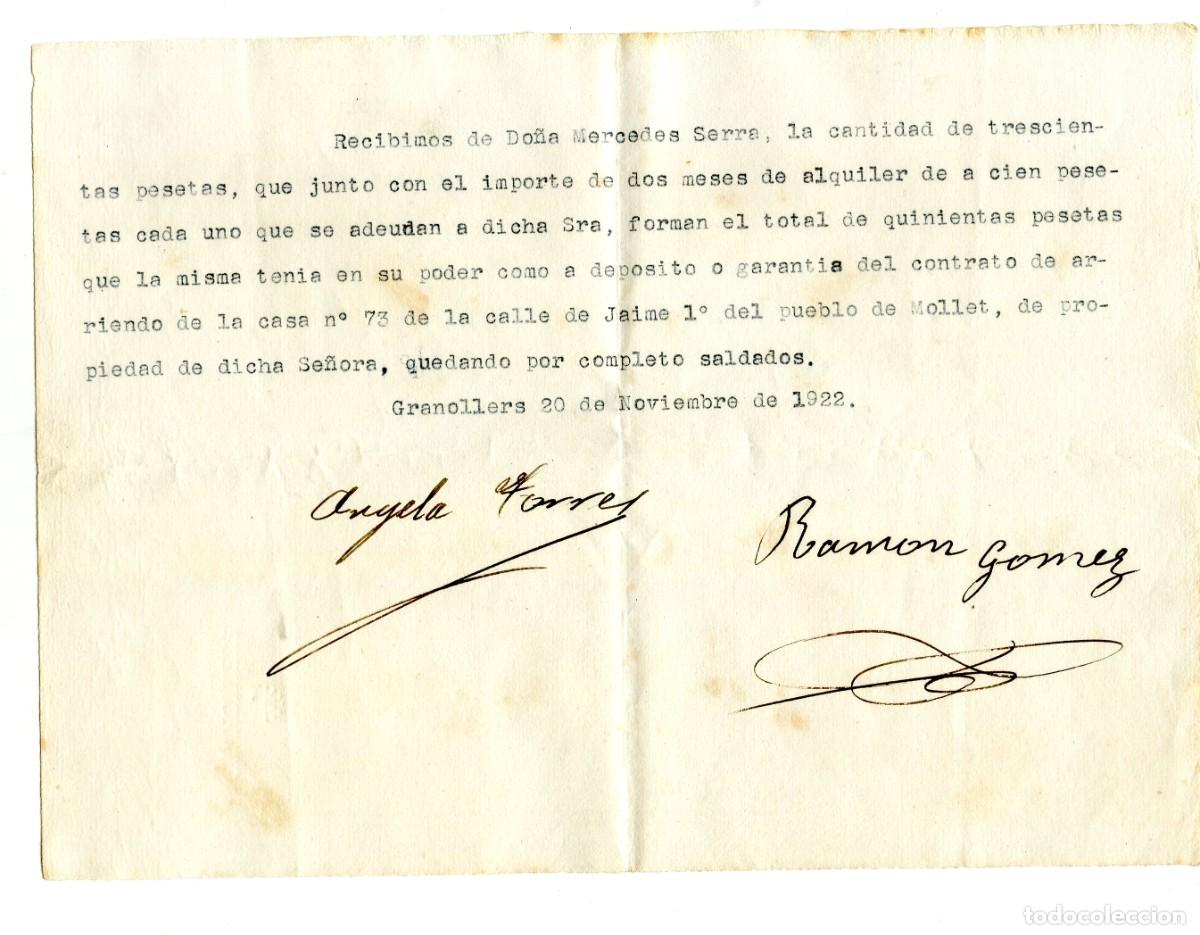 Recibimos de Doña Mercedes Serra, la cantidad de trescien-
tas pesetas, que junto con el importe de dos meses de alquiler de a cien pese-
tas cada uno que se adeudan a dicha Sra, forman el total de quinientas pesetas
que la misma tenia en su poder como a deposito o garantia del contrato de ar-
riendo de la casa nº 73 de la calle de Jaime 1º del pueblo de Mollet, de pro-
piedad de dicha Señora, quedando por completo saldados.
Granollers 20 de Noviembre de 1922.
Angela Torres
Ramon Gomez
todocoleccion